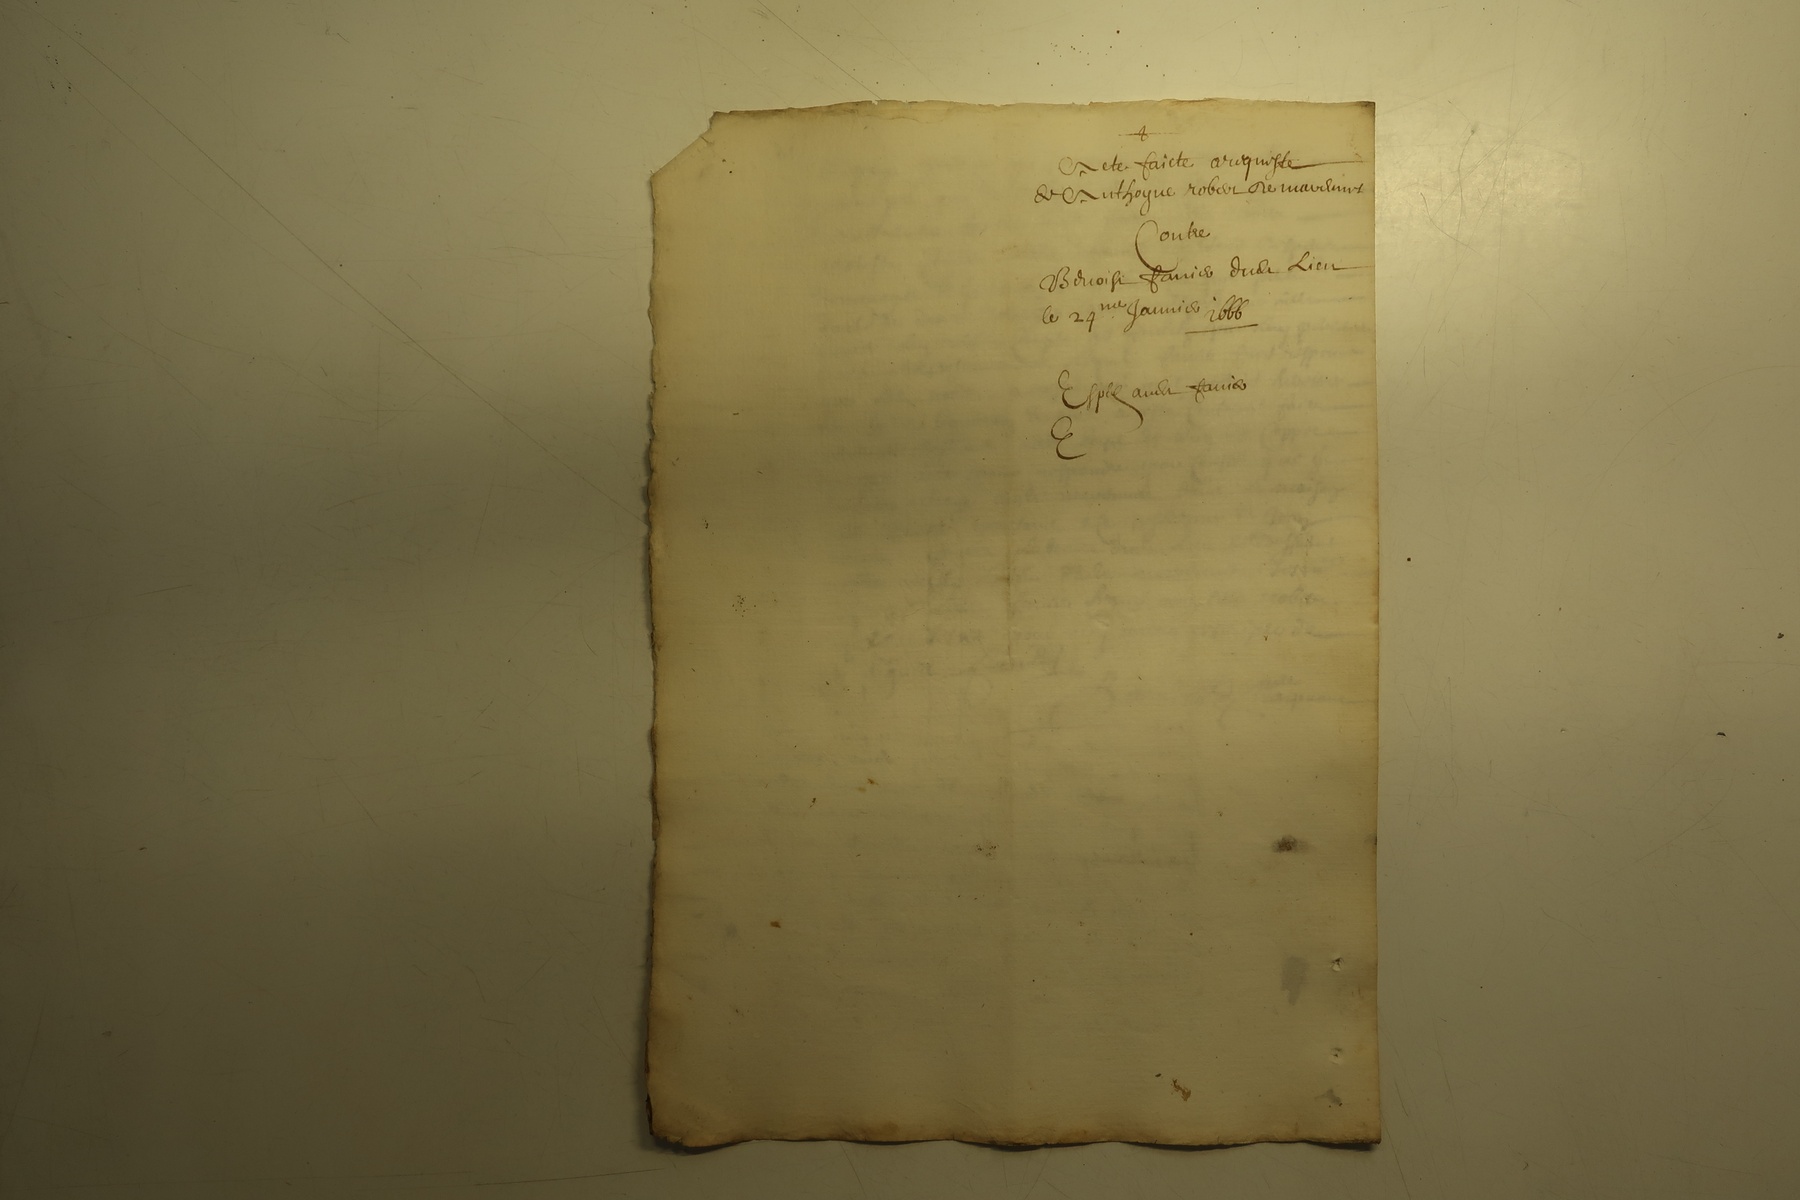 +
Acte faicte a requeste
de Anthoyne robert de
Contre
Benoist fanier dudt Lieu
le 24me Janvier 1666
Esple audt fanier
E